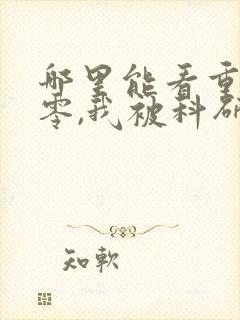 哪里能看重
零,我被科研
知軟